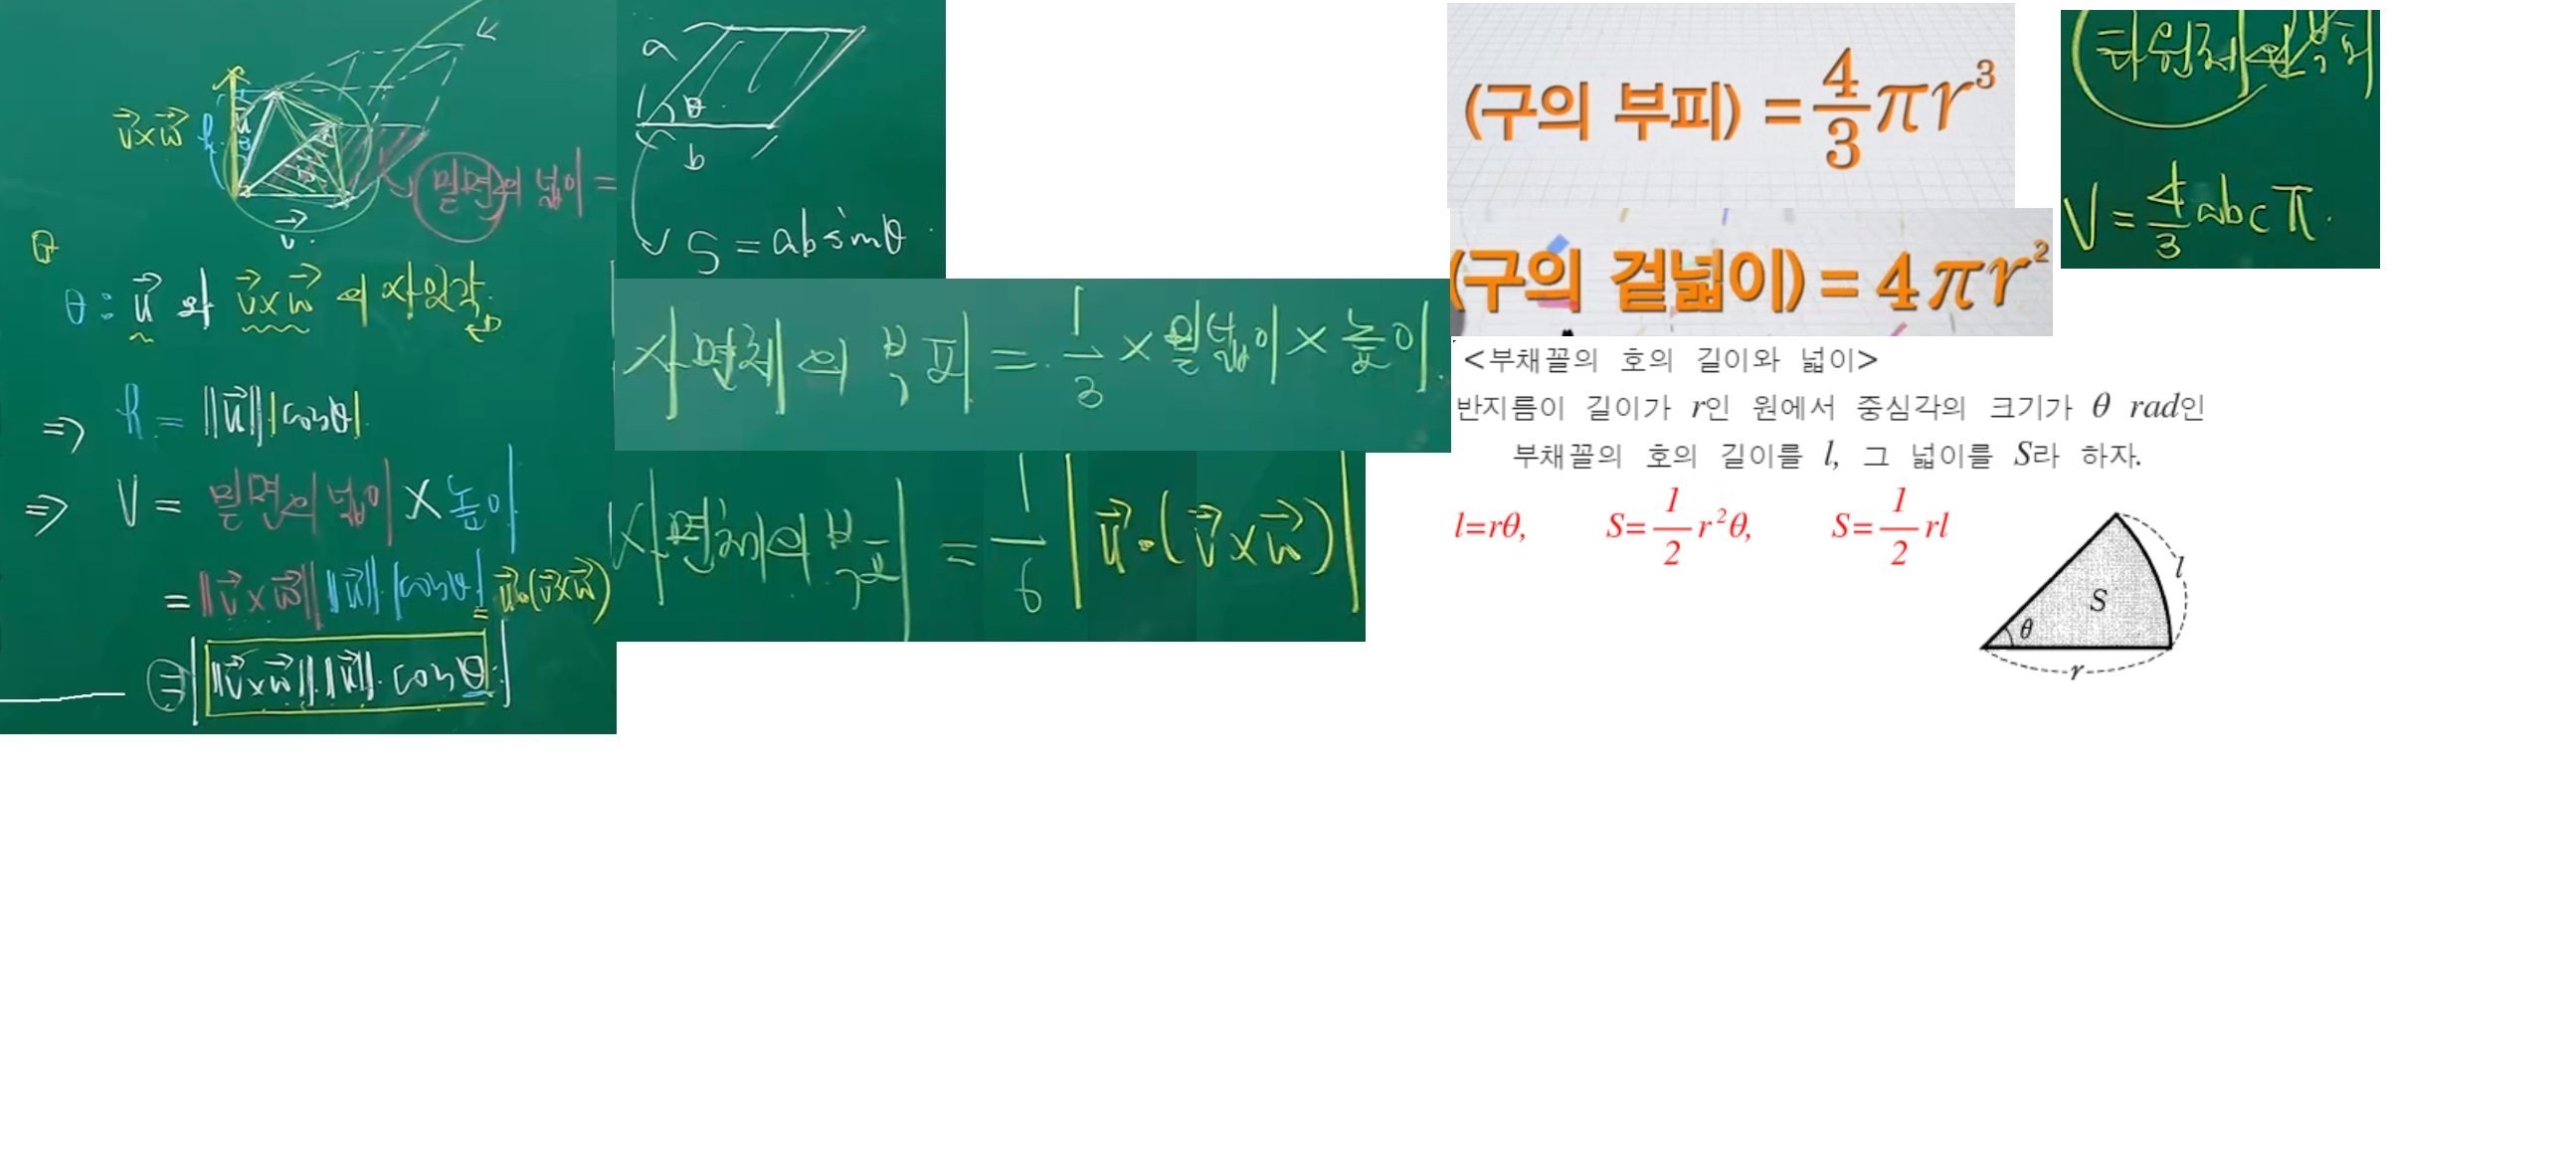 v×w h
밑면의 넓이 =
v
θ : u 와 v×w 의 사잇각
⇒ h = ||u|| |cosθ|
⇒ V = 밑면의 넓이 × 높이
= ||v×w|| ||u|| |cosθ|
= u·(v×w)
= | ||v×w|| ||u|| cosθ |
a
θ
b
S = ab sinθ
사면체의 부피 = 1/3 × 밑넓이 × 높이
사면체의 부피 = 1/6 | u·(v×w) |
(구의 부피) = 4/3 πr³
(구의 겉넓이) = 4πr²
타원체의 부피
V = 4/3 abc π.
<부채꼴의 호의 길이와 넓이>
반지름이 길이가 r인 원에서 중심각의 크기가 θ rad인
부채꼴의 호의 길이를 l, 그 넓이를 S라 하자.
l=rθ, S=1/2 r²θ, S=1/2 rl
l
S
θ
r